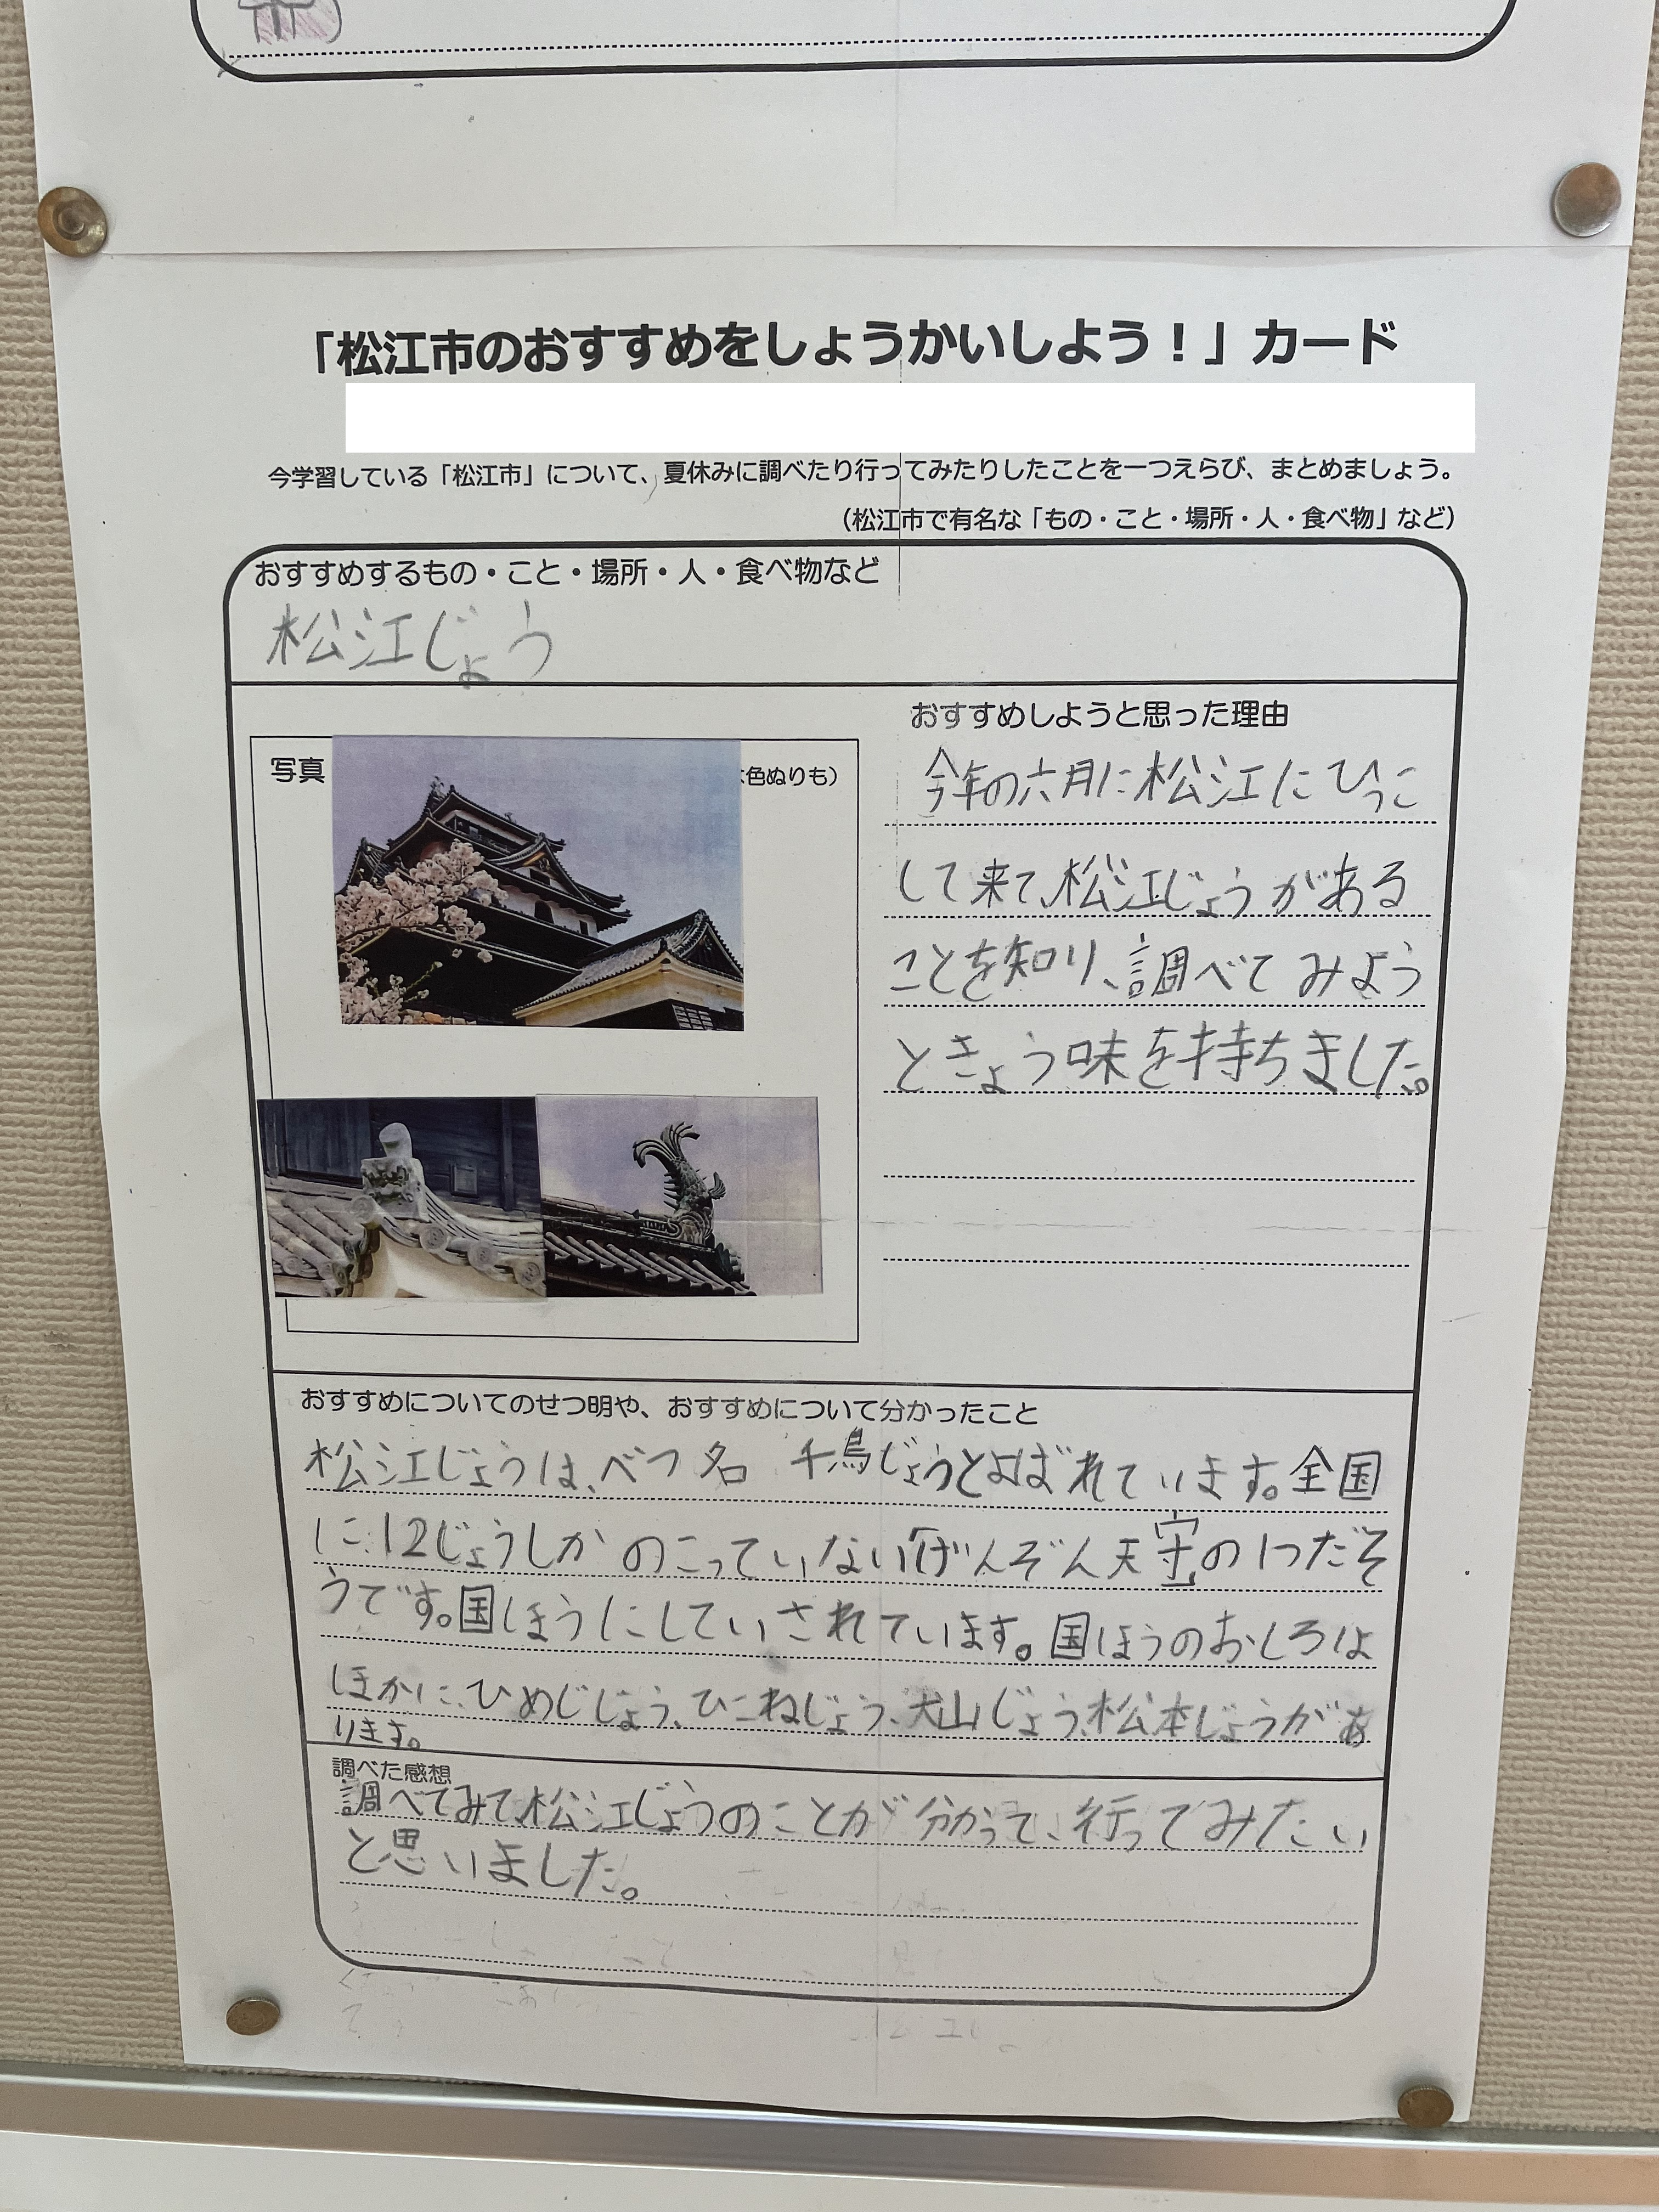 「松江市のおすすめをしょうかいしよう！」カード
今学習している「松江市」について、夏休みに調べたり行ってみたりしたことを一つえらび、まとめましょう。
（松江市で有名な「もの・こと・場所・人・食べ物」など）
おすすめするもの・こと・場所・人・食べ物など
松江じょう
写真
色ぬりも）
おすすめしようと思った理由
今年の六月に松江にひっこ
して来て、松江じょうがある
ことを知り、調べてみよう
ときょう味を持ちました。
おすすめについてのせつ明や、おすすめについて分かったこと
松江じょうは、べつ名 千鳥じょうとよばれています。全国
に12じょうしかのこっていないげんぞん天守の1つだそ
うです。国ほうにしていされています。国ほうのおしろは
ほかに、ひめじじょう、ひこねじょう、犬山じょう、松本じょうがあ
ります。
調べた感想
調べてみて、松江じょうのことが分かって、行ってみたい
と思いました。